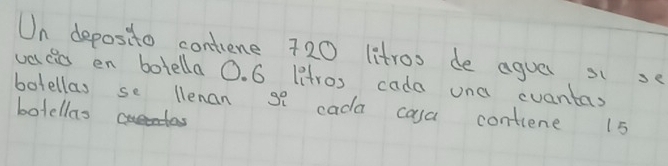 Un deposito contiene 720 litros de agua si se
vacia en botella 0.6 litros cada una cuantas
botellas se llenan si cada caja contiene 15
botellas